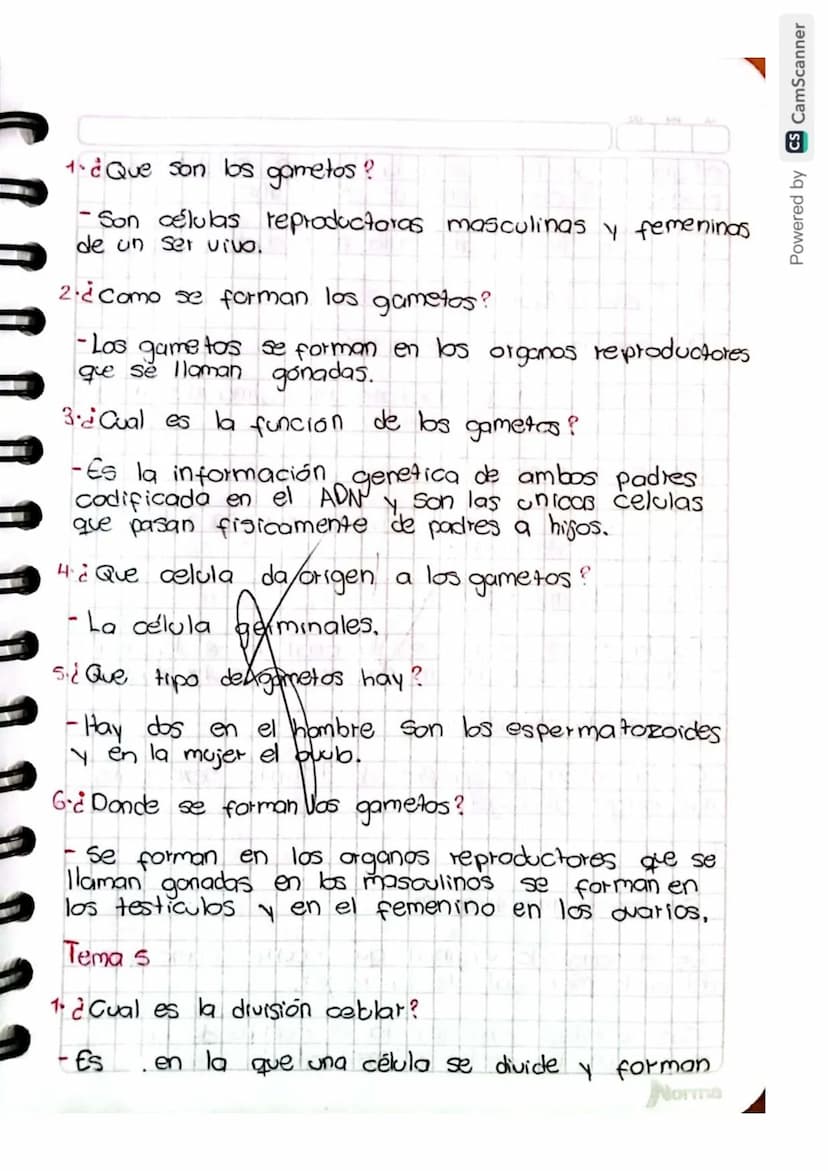 1. ¿Que son los gametos?
- Son células reproductoras masculinas y femeninas
de un ser vivo.
2. ¿Como se forman los gametos?
- Los gametos se forman en los organos reproductores
que se llaman gonadas.
3. ¿Cual es la función de los gametos?
- Es la información genetica de ambos padres
codificada en el ADN y son las unicas celulas
que pasan fisicamente de padres a hijos.
4. ¿Que celula da origen a los gametos?
- La célula germinales.
5. ¿Que tipo de gametos hay?
- Hay dos en el hombre son los espermatozoides
y en la mujer el
6. ¿Donde se forman los gametos?
- Se forman en los organos reproductores que se
llaman gonadas en los masculinos se forman en
los testiculos y en el femenino en los ovarios.
Tema 5
1. ¿Cual es la división celular?
- Es . en la que una célula se divide y forman
Norma
Powered by CS CamScanner